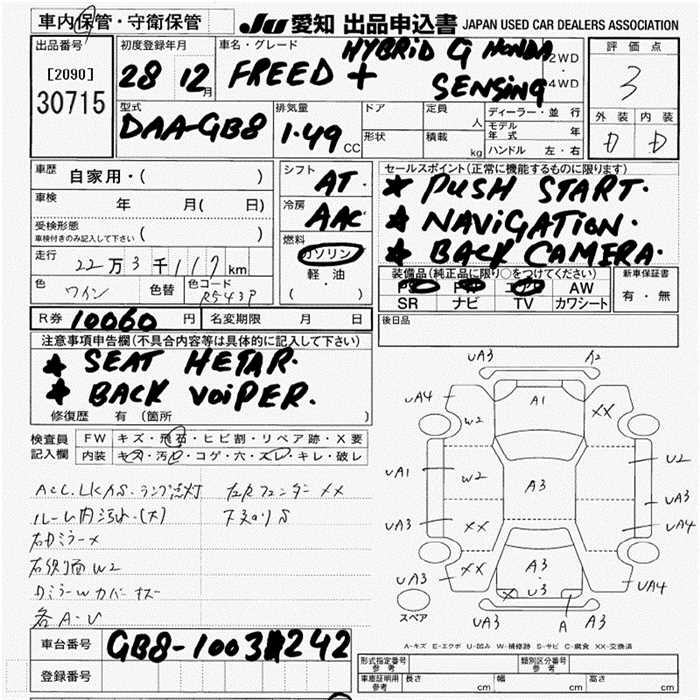 車内保管・守衛保管
JU 愛知 出品申込書 JAPAN USED CAR DEALERS ASSOCIATION
出品番号
[2090]
30715
初度登録年月
28 12月
車名・グレード
HYBRID G HONDA
FREED + SENSING
2WD
・
4WD
評価点
3
外装 内装
D D
型式
DAA-GB8
排気量
1.49 CC
ドア
形状
定員 人
積載 kg
ディーラー・並行
モデル年式 年
ハンドル 左・右
車歴
自家用・( )
車検 年 月( )
受検形態
車検付きのみ記入して下さい ( )
走行 22万3千117km
色 ワイン 色替 色コード R543P
シフト
AT.
冷房
AAC
燃料
ガソリン
軽油
( ・ )
セールスポイント(正常に機能するものに限ります)
★ PUSH START.
★ NAVIGATION.
★ BACK CAMERA.
装備品(純正品に限り○をつけてください)
PS PW エアB AW
SR ナビ TV カワシート
新車保証書
有・無
R券 10060 円 名変期限 月 日
後日品
注意事項申告欄(不具合内容等は具体的に記入して下さい)
★ SEAT HETAR.
★ BACK VOIPER.
修復歴 有(箇所 )
検査員記入欄
FW キズ・飛石・ヒビ割・リペア跡・X要
内装 キズ・汚れ・コゲ・穴・スレ・キレ・破レ
ルーム内汚れ(大)
右ドミラーX
W2
ミラーWカバーキズ
各A・U
左右フェンダーXX
UA3 A2
UA4 W2 A1 XX
UA1 W2 A3 U2
UA3 XX UA3
UA4
XX A3
X U3
UA3 UA4
UA3 A UA3
スペア
A-キズ E-エクボ U-凹み W-補修跡 S-サビ C-腐食 XX-交換済
車台番号 GB8-1003242
登録番号
形式指定番号 参考
類別区分番号 参考
車庫証明用 参考 長さ cm 幅 cm 高さ cm